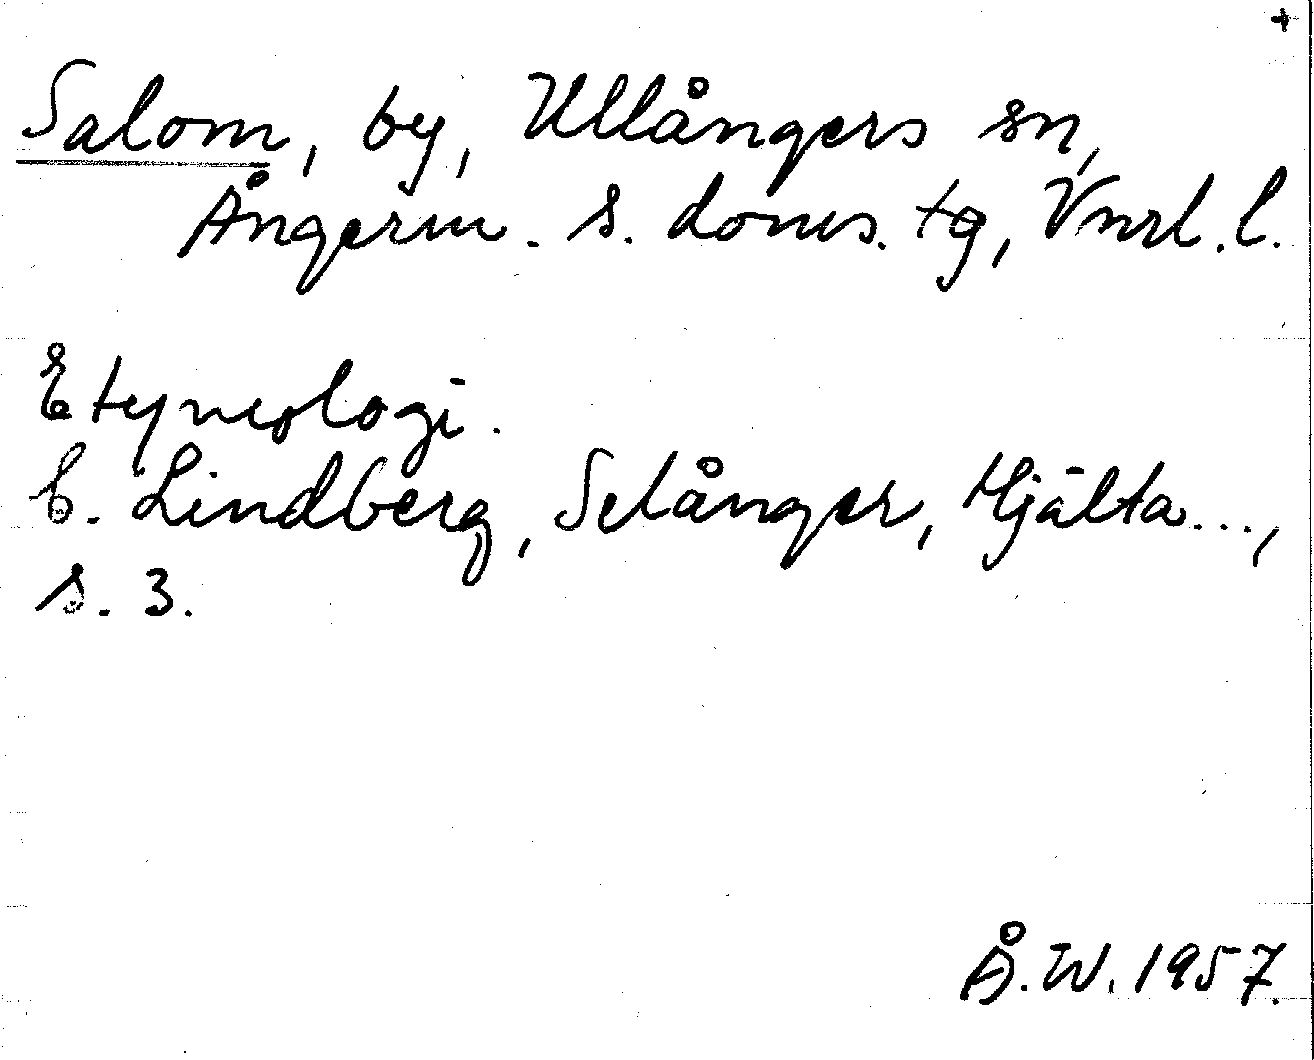 +
Salom, by, Ullångers sn,
Ångerm. S. doms. tg, Vnrl. l.
Etymologi.
C. Lindberg, Selånger, Hjälta...,
s. 3.
Å.W. 1957.